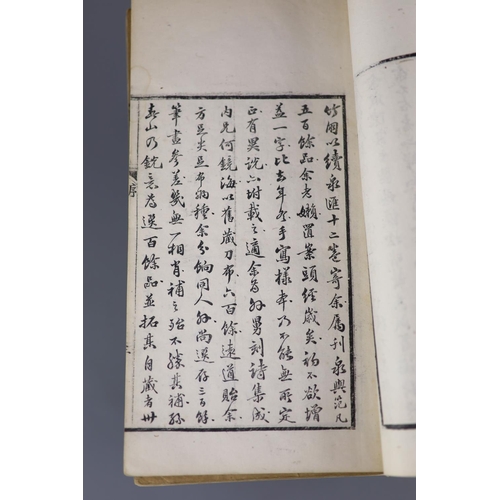 竹朋以續泉匯十二卷寄余属刊泉與范凡
五百餘品余老嬾置案頭經歲矣初不欲增
益一字比去年冬手寫樣本乃不能無所定
正有異說六附載之適余為外舅刻詩集成
内兄何鏡海以舊藏刀布六百餘遠道貽余
方足尖足布納種余分餉同人外尚選存三百餘
筆畫參差幾無一相肖補之殆不勝其補孫
春山乃銳意為選百餘品並拓其自藏者卌
序